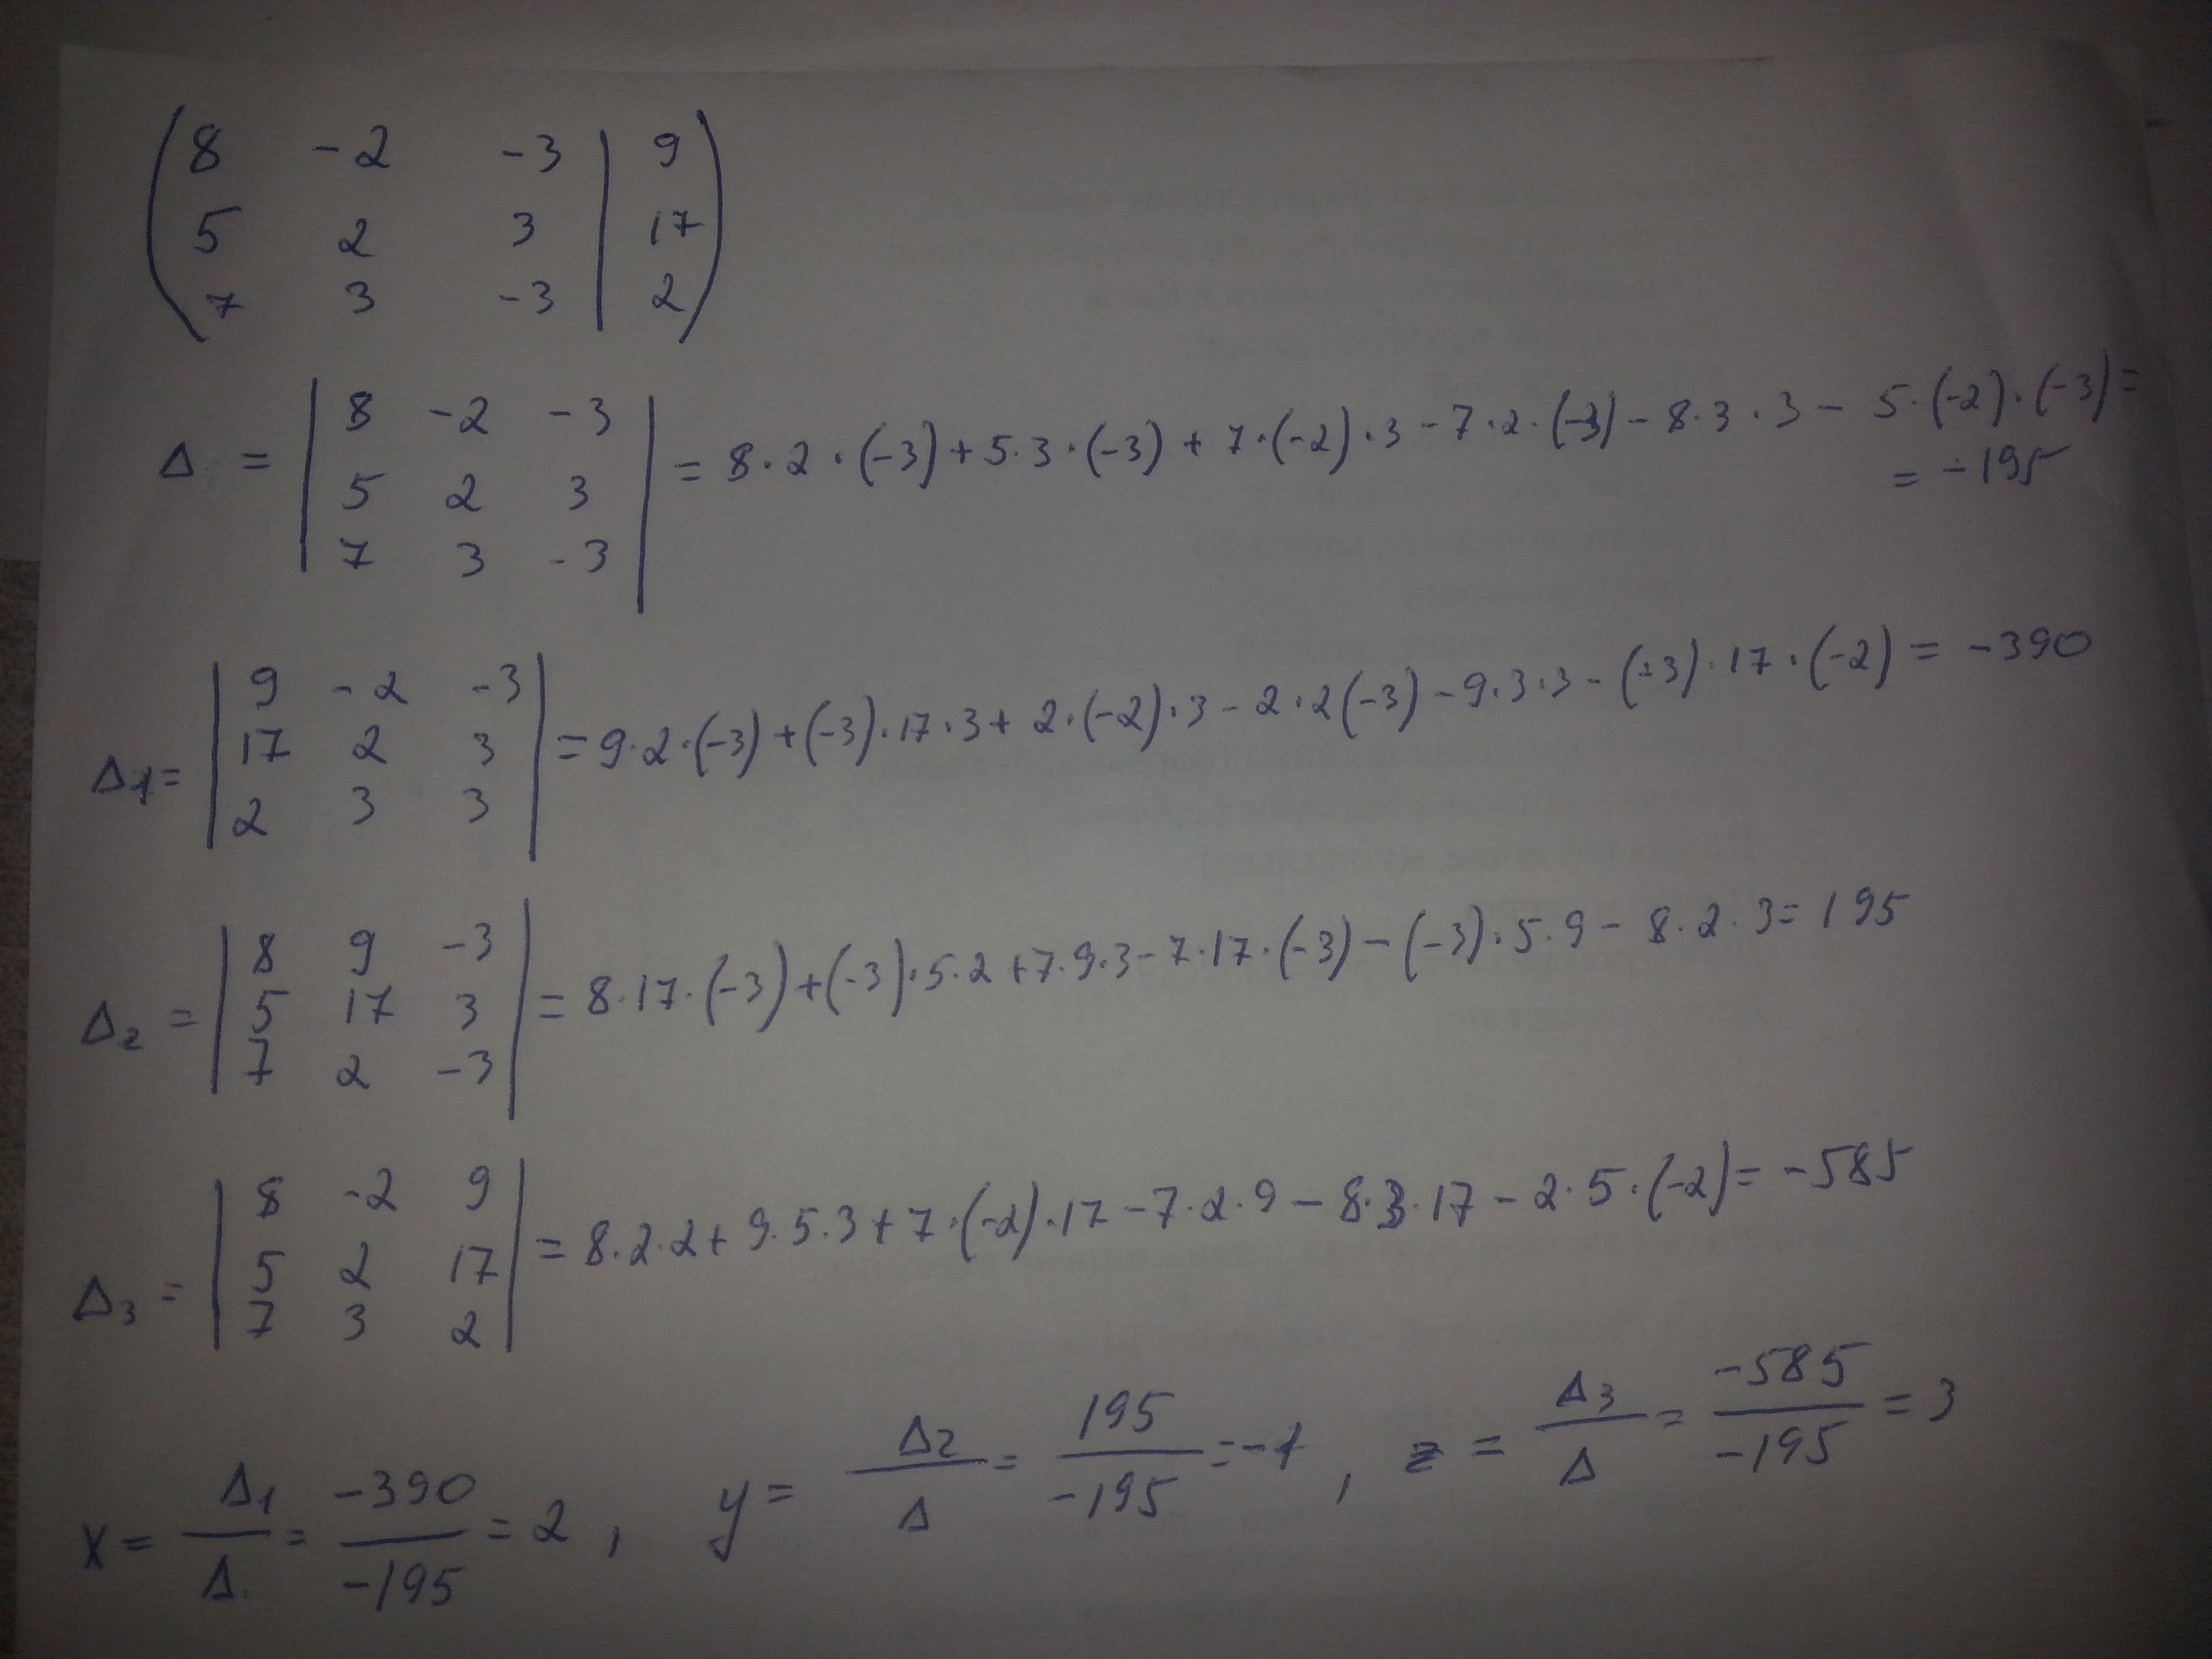 8 -2 -3 | 9
5 2 3 | 17
7 3 -3 | 2
8 -2 -3
Δ = 5 2 3 = 8·2·(-3)+5·3·(-3)+7·(-2)·3-7·2·(-3)-8·3·3-5·(-2)·(-3)=
7 3 -3
= -195
9 -2 -3
Δ1= 17 2 3 =9·2·(-3)+(-3)·17·3+2·(-2)·3-2·2(-3)-9·3·3-(-3)·17·(-2)= -390
2 3 3
8 9 -3
Δ2 = 5 17 3 = 8·17·(-3)+(-3)·5·2+7·9·3-7·17·(-3)-(-3)·5·9-8·2·3=195
7 2 -3
8 -2 9
Δ3 = 5 2 17 = 8·2·2+9·5·3+7·(-2)·17-7·2·9-8·3·17-2·5·(-2)= -585
7 3 2
x = Δ1/Δ = -390/-195 = 2, y = Δ2/Δ = 195/-195 = -1, z = Δ3/Δ = -585/-195 = 3